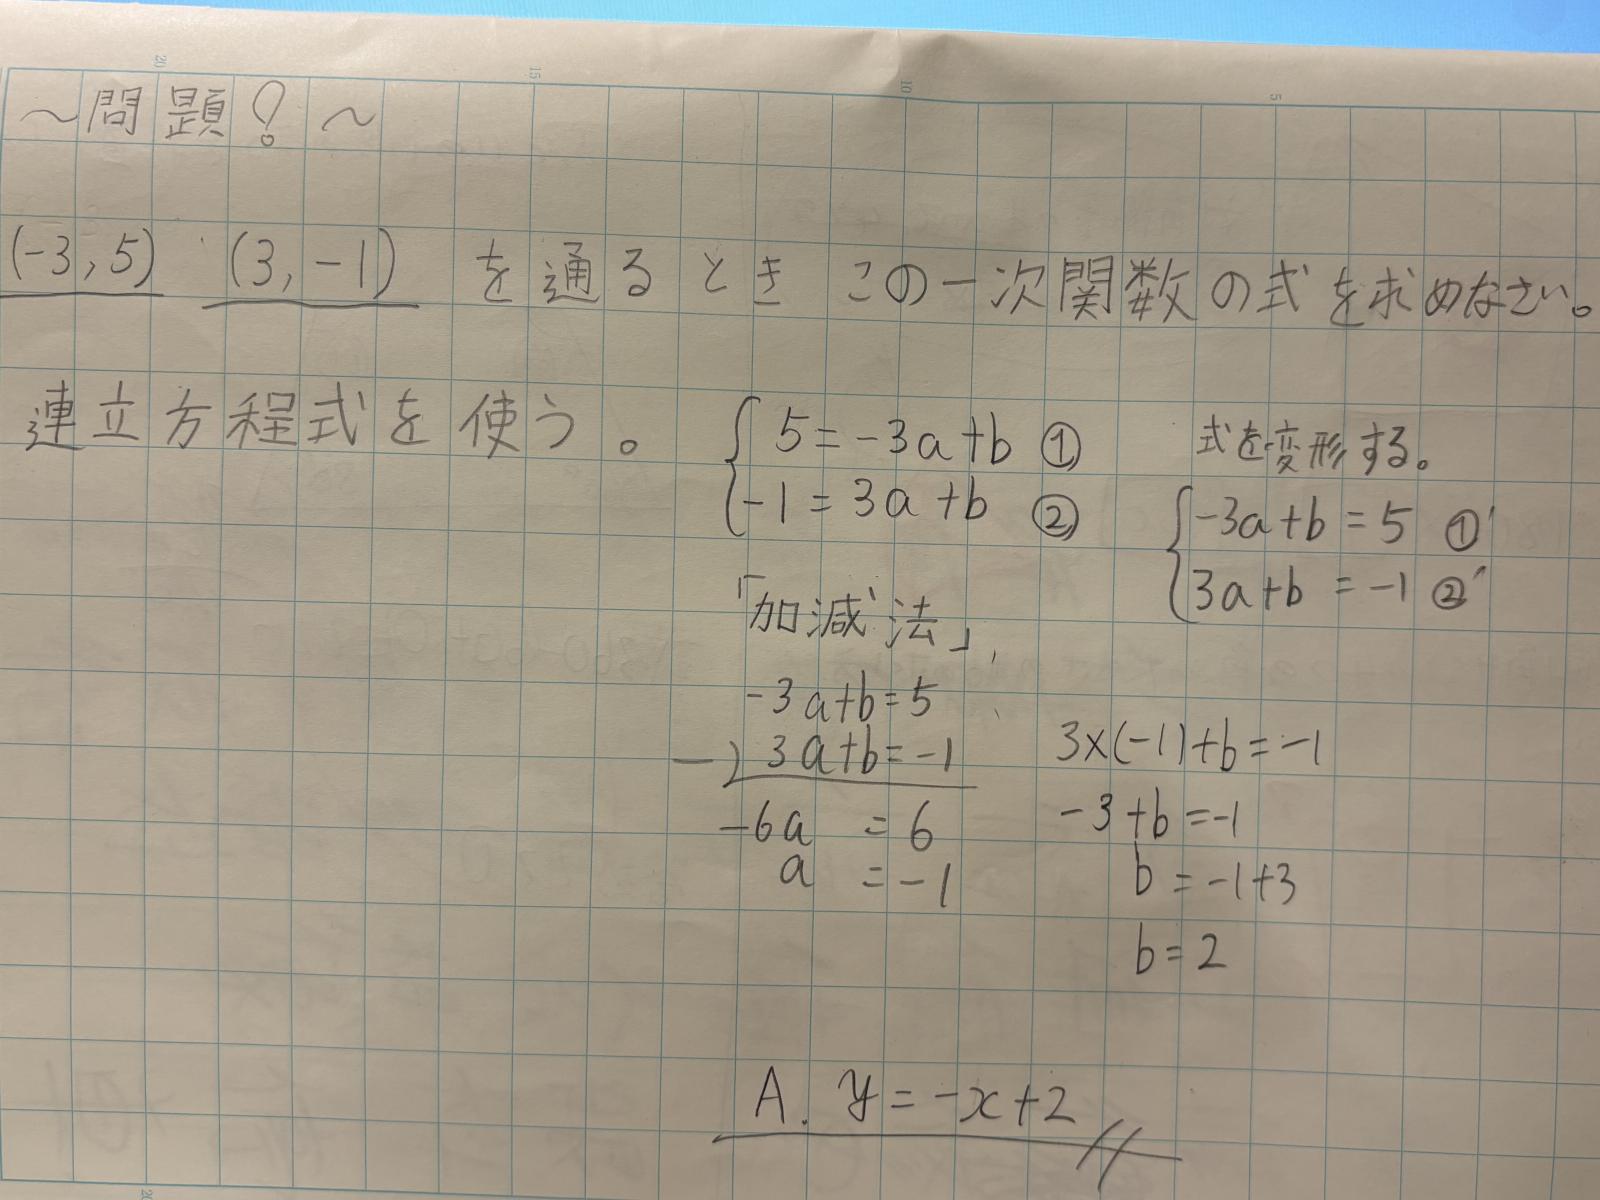 ～問題？～
(-3,5) (3,-1) を通るときこの一次関数の式を求めなさい。
連立方程式を使う。
5=-3a+b ①
-1=3a+b ②
式を変形する。
-3a+b=5 ①'
3a+b=-1 ②'
「加減法」
-3a+b=5
-) 3a+b=-1
-6a =6
a =-1
3×(-1)+b=-1
-3+b=-1
b=-1+3
b=2
A. y=-x+2